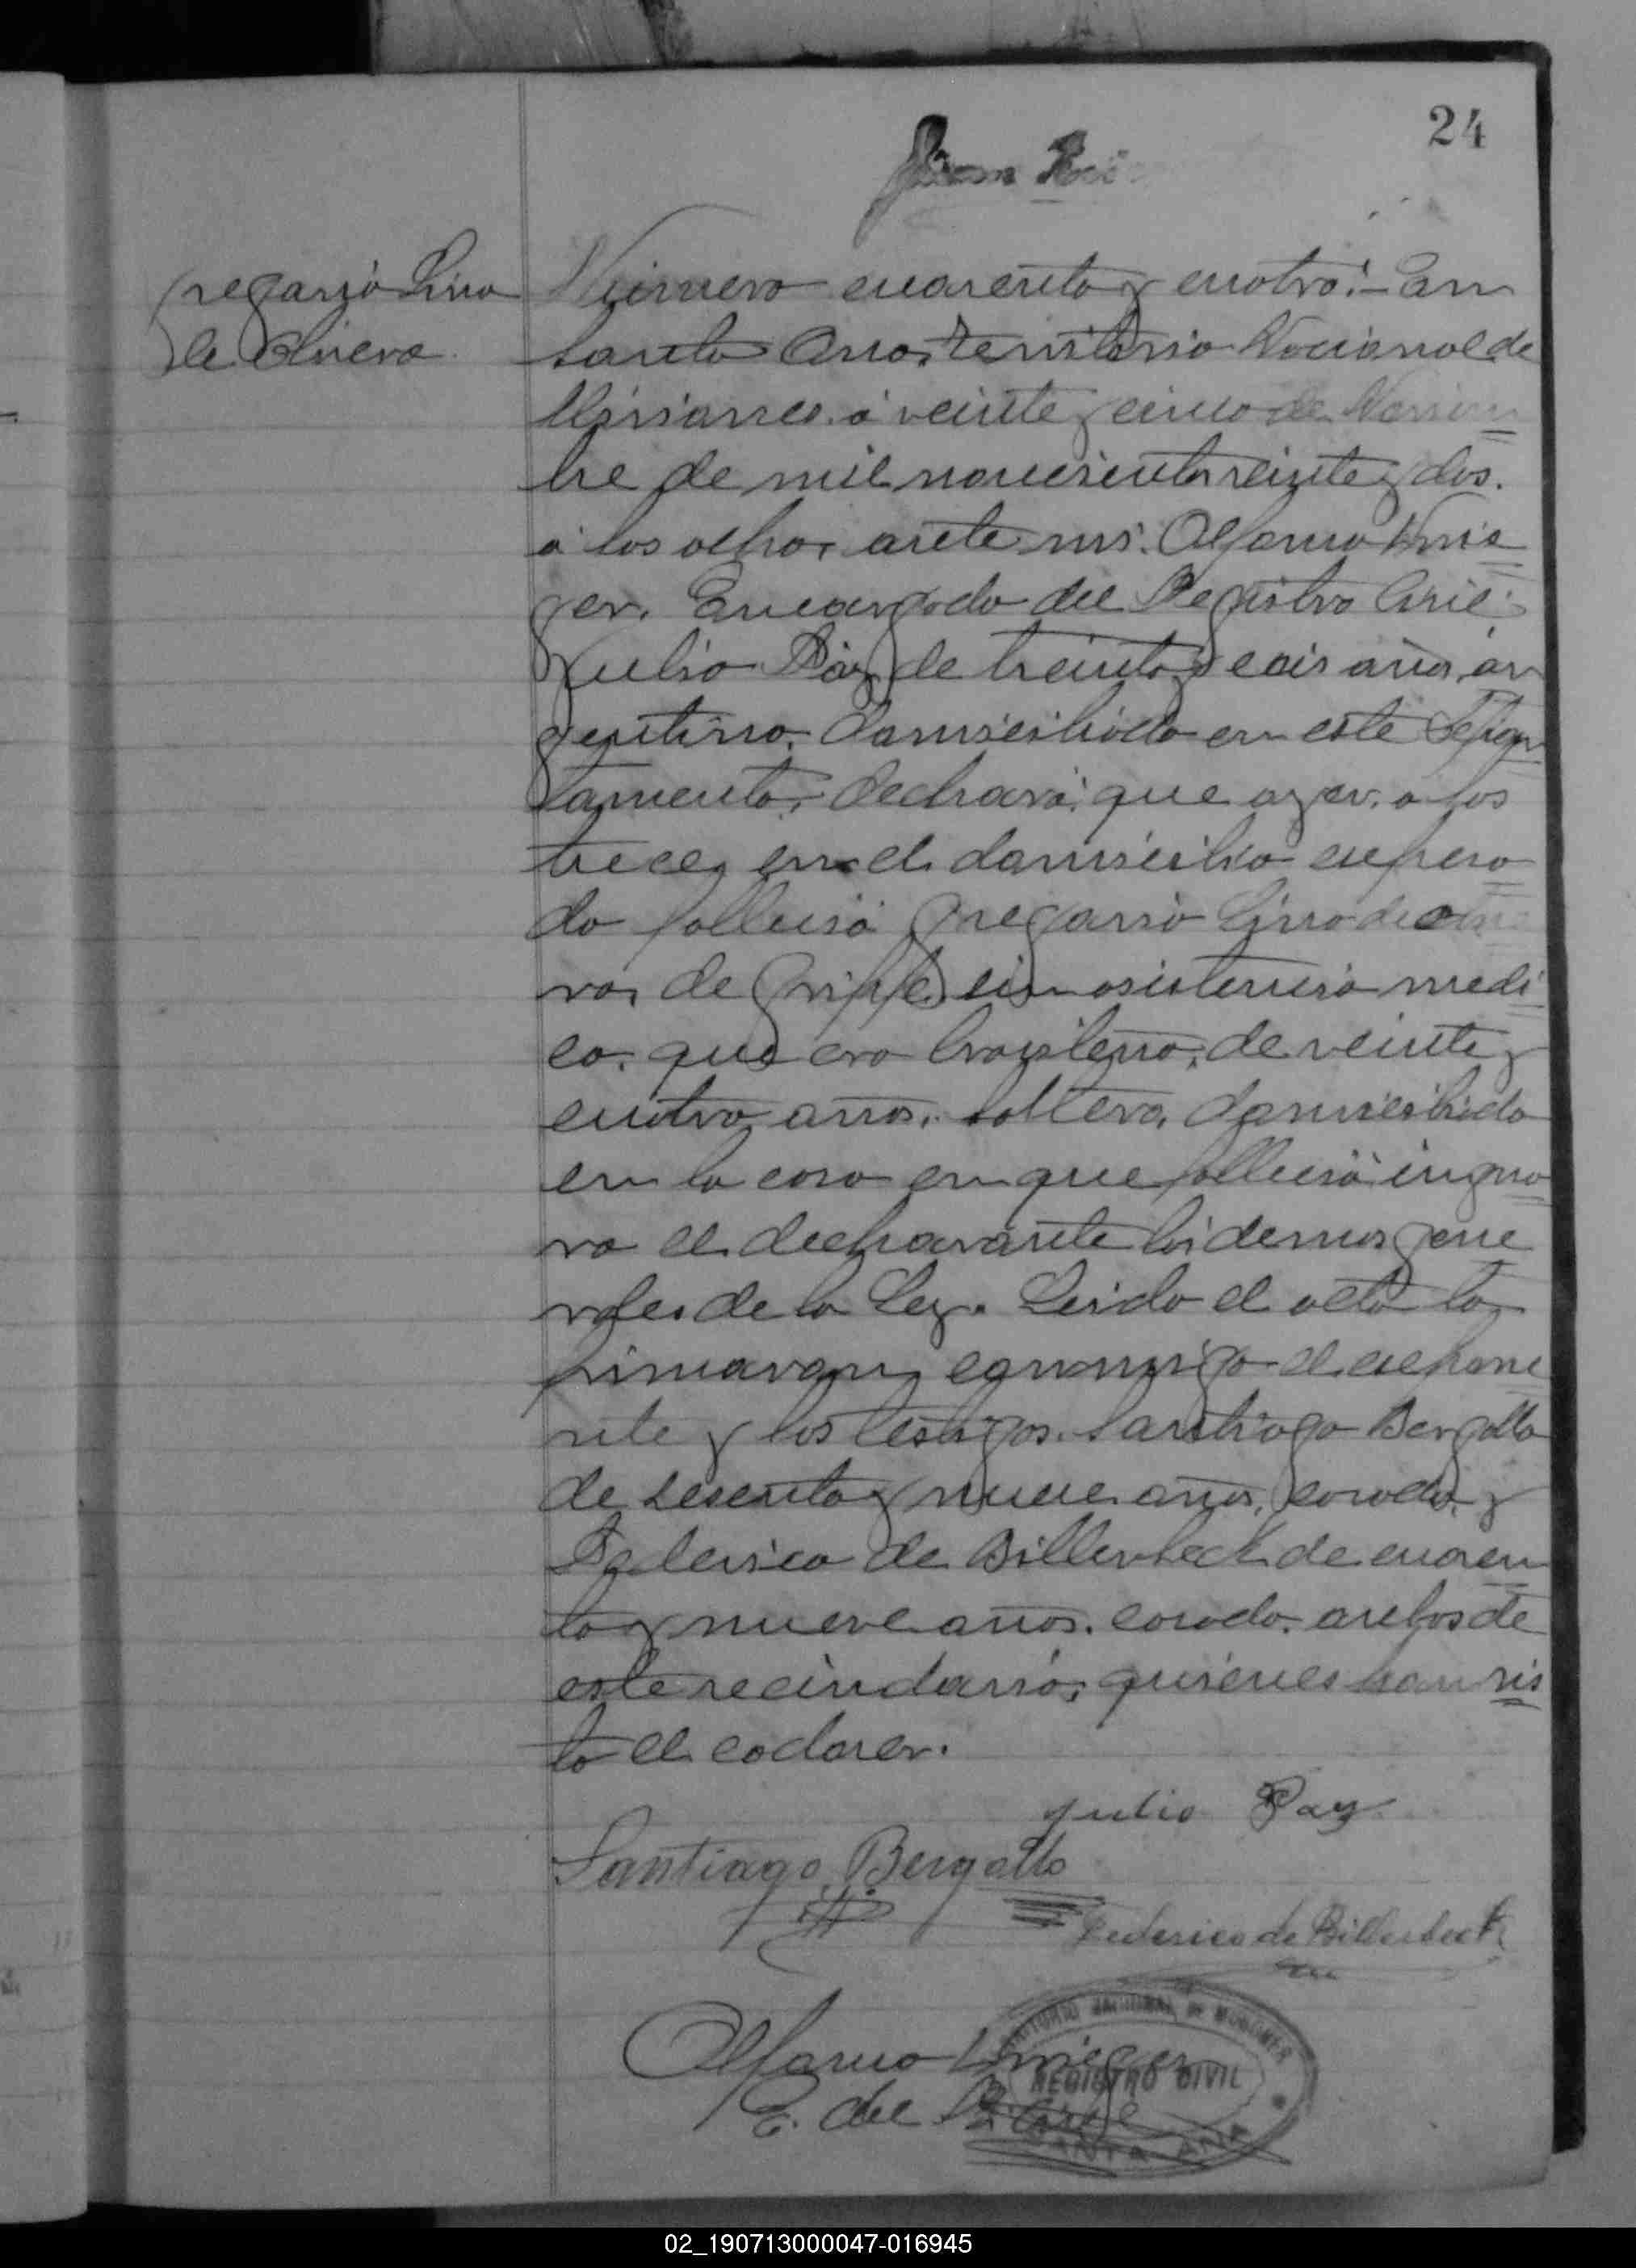 24
Juan
Gregorio Lino
de Olivera
Número cuarenta y cuatro:- En
Santa Ana, Territorio Nacional de
Misiones. á veinte y cinco de Noviem
bre de mil novecientos veinte y dos.
á las ocho, ante mi. Alfonso
ger. Encargado del Registro Civil:
Julio Paz de treinta y seis años, ar
gentino. domiciliado en este Depar
tamento, declaró: que ayer, a las
trece, en el domicilio expresa
do falleció Gregorio Lino de Oli
vera, de Grippe, sin asistencia medi
ca. que era brasilero, de veinte y
cuatro años. soltero, domiciliado
en la casa en que falleció igno
ra el declarante las demas gene
rales de la Ley. Leida el acta la
firmaron conmigo el expone
nte y los testigos. Santiago Bergallo
de sesenta y nueve años, casado, y
Federico de Billerbeck de cuaren
ta y nueve años. casado. ambos de
este vecindario, quienes han vis
to el cadaver.
Julio Paz
Santiago Bergallo
Federico de Billerbeck
Alfonso
E. del R. Civil
TERRITORIO NACIONAL DE MISIONES
REGISTRO CIVIL
SANTA ANA
02_190713000047-016945